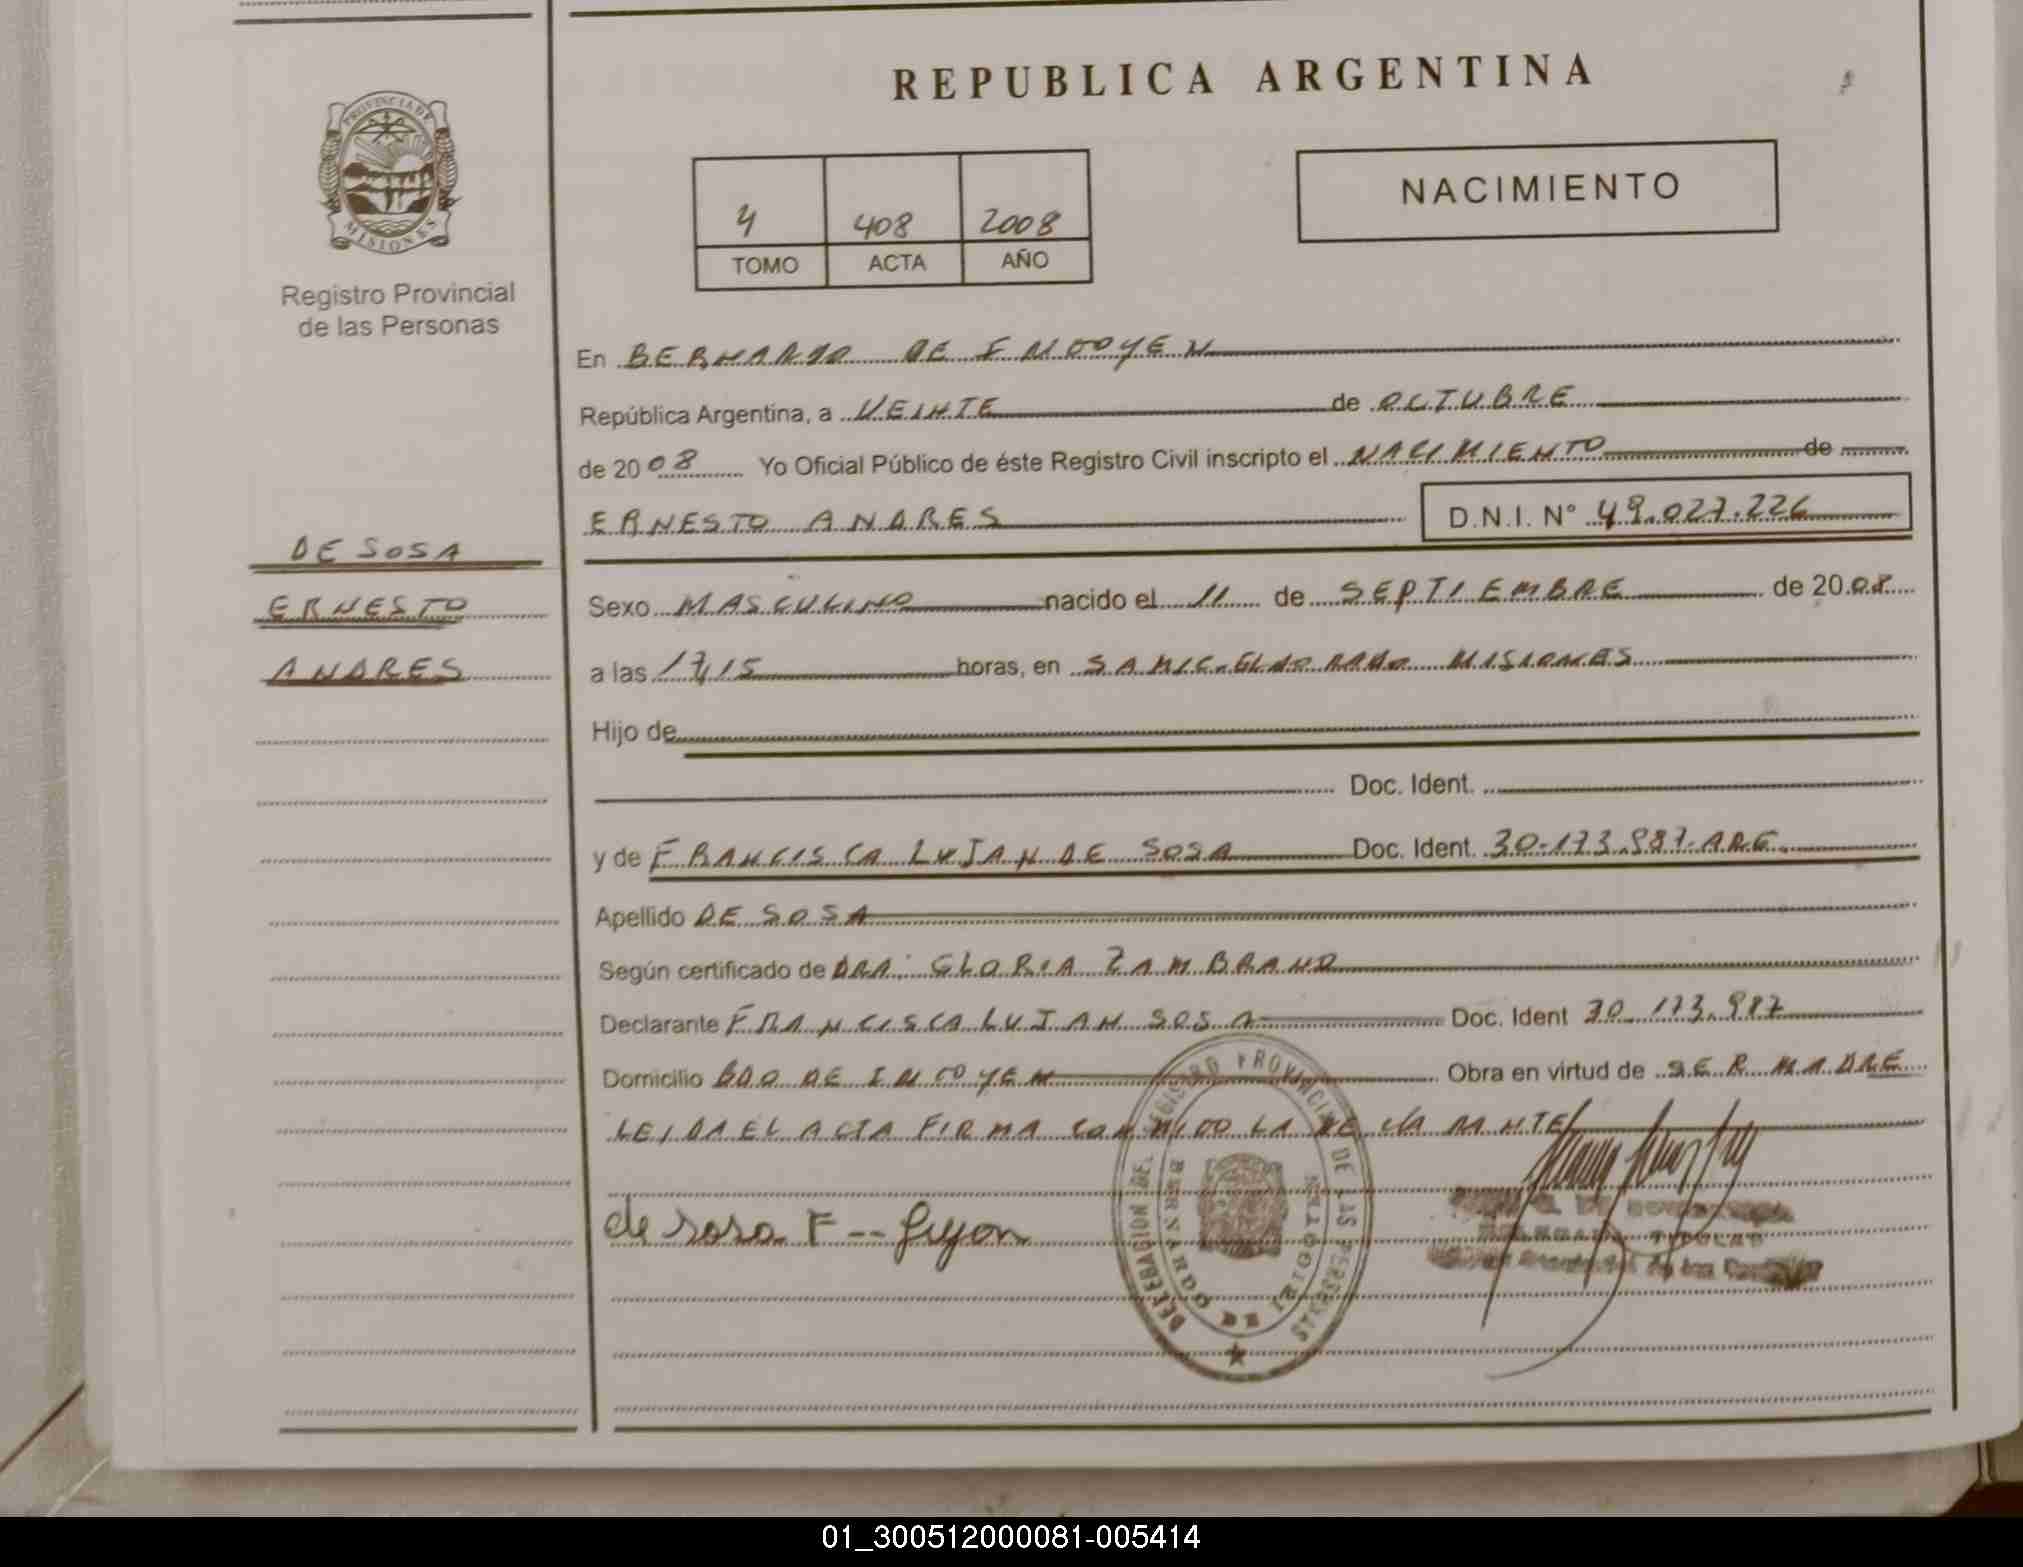 REPUBLICA ARGENTINA
PROVINCIA DE
MISIONES
Registro Provincial
de las Personas
4 408 2008
TOMO ACTA AÑO
NACIMIENTO
En BERNARDO DE IRIGOYEN
República Argentina, a VEINTE de OCTUBRE
de 2008 Yo Oficial Público de éste Registro Civil inscripto el NACIMIENTO de
ERNESTO ANDRES D.N.I. Nº 49.027.226
DE SOSA
ERNESTO
ANDRES
Sexo MASCULINO nacido el 11 de SEPTIEMBRE de 2008
a las 17,15 horas, en SAMIC-ELDORADO MISIONES
Hijo de
Doc. Ident.
y de FRANCISCA LUJAN DE SOSA Doc. Ident. 30-173.987-ARG.
Apellido DE SOSA
Según certificado de DRA: GLORIA ZAMBRANO
Declarante FRANCISCA LUJAN SOSA Doc. Ident 30.173.987
Domicilio BDO DE IRIGOYEN Obra en virtud de SER MADRE
LEIDA EL ACTA FIRMA CONMIGO LA DECLARANTE
de sosa F --
DELEGACION DEL REGISTRO PROVINCIAL DE LAS PERSONAS
BERNARDO DE IRIGOYEN
01_300512000081-005414